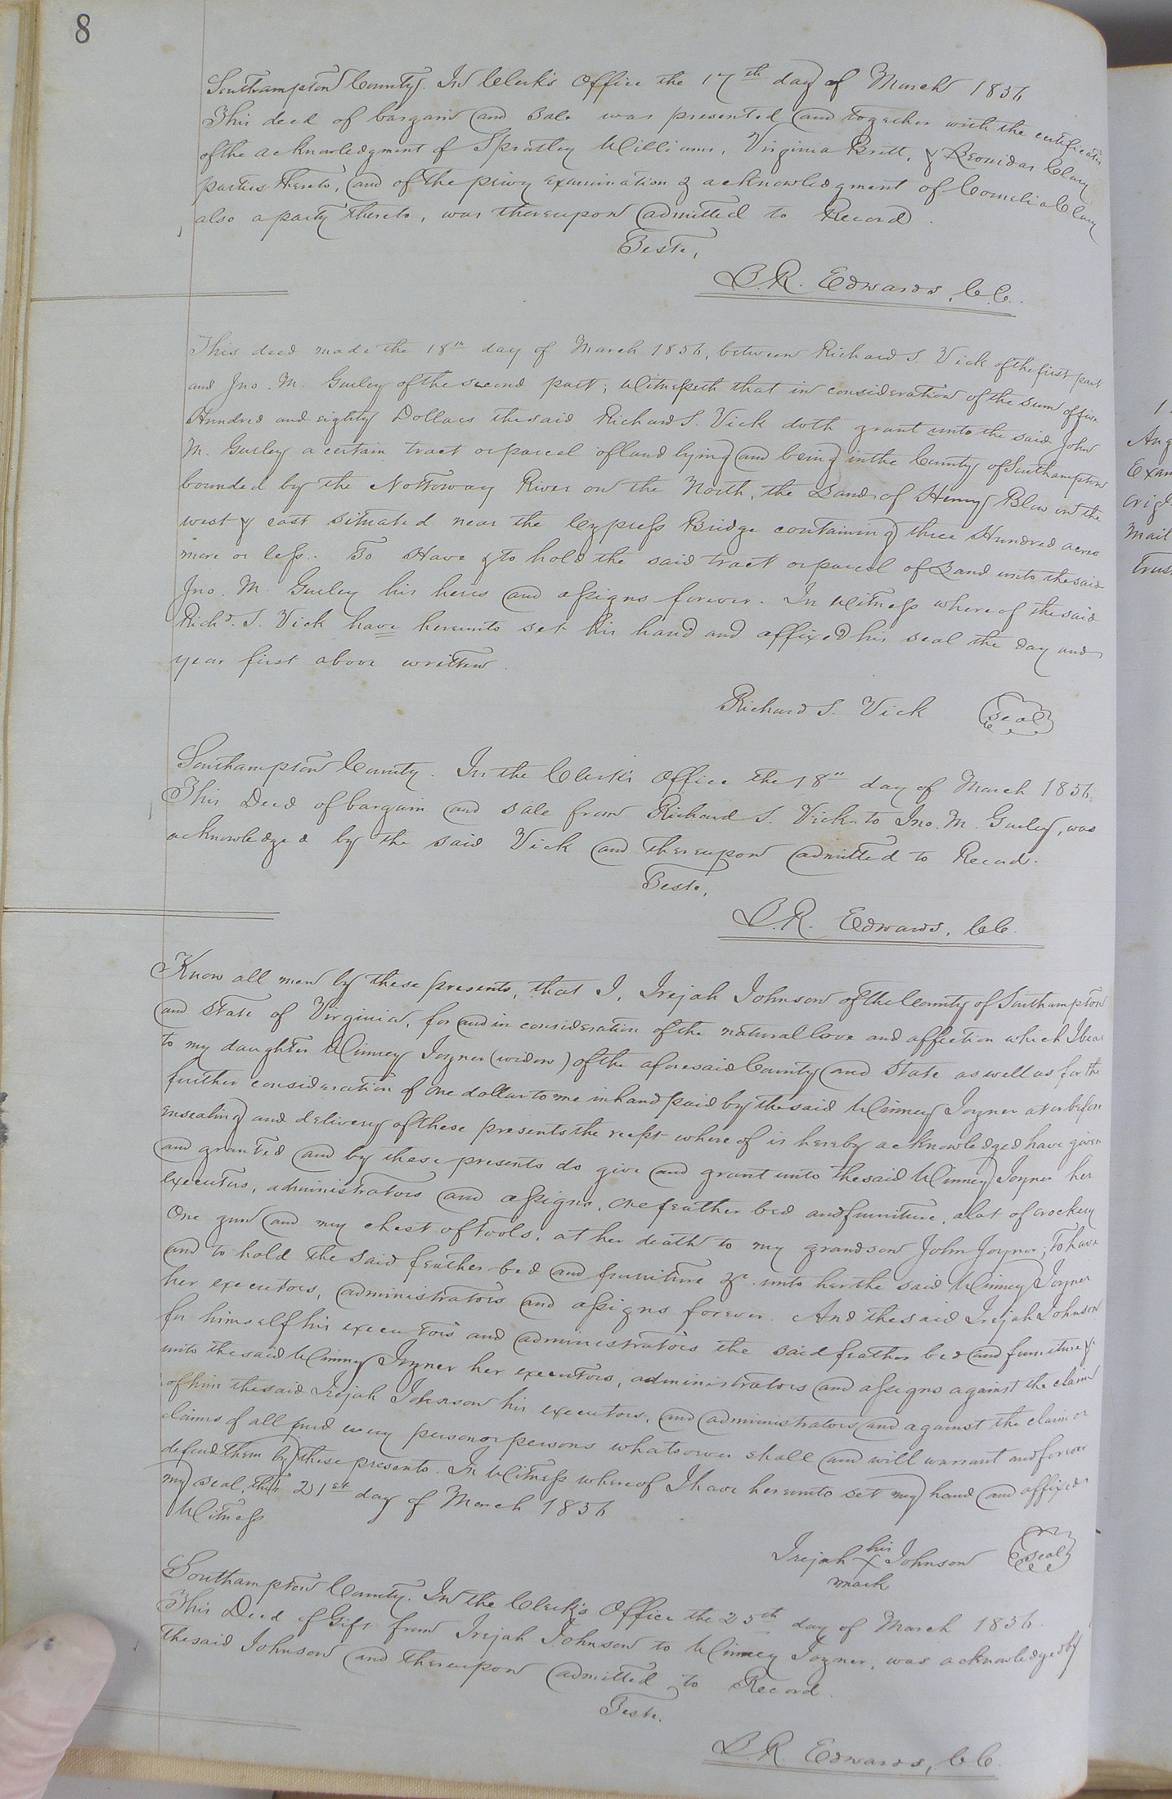 8
Southampton County. In Clerk's Office the 17th day of March 1856
This deed of bargain and Sale was presented and together with the certificates
of the acknowledgment of Spratley Williams, Virginia Britt, & Leonidas Clary
parties thereto, and of the privy examination & acknowledgment of Cornelia Clary
also a party thereto, was thereupon admitted to Record.
Teste,
L. R. Edwards, C.C.
This deed made the 18th day of March 1856, between Richard S. Vick of the first part
and Jno. M. Gurley of the second part; Witnesseth that in consideration of the sum of five
Hundred and eighty Dollars the said Richard S. Vick doth grant unto the said John
M. Gurley a certain tract or parcel of land lying and being in the County of Southampton
bounded by the Nottoway River on the North, the Lands of Henry Blow on the
west & east situated near the Cypress Bridge containing three Hundred acres
more or less. To Have & to hold the said tract or parcel of Land unto the said
Jno. M. Gurley his heirs and assigns forever. In Witness whereof the said
Richd. S. Vick have hereunto set his hand and affixed his seal the day and
year first above written.
Richard S. Vick seal
Southampton County. In the Clerk's Office the 18th day of March 1856.
This Deed of bargain and sale from Richard S. Vick to Jno. M. Gurley, was
acknowledged by the said Vick and thereupon admitted to Record.
Teste,
L. R. Edwards, C.C.
Know all men by these presents, that I, Irejah Johnson of the County of Southampton
and State of Virginia, for and in consideration of the natural love and affection which I bear
to my daughter Winney Joyner (widow) of the aforesaid County and State as well as for the
further consideration of one dollar to me in hand paid by the said Winney Joyner at or before
ensealing and delivery of these presents the receipt whereof is hereby acknowledged have given
and granted and by these presents do give and grant unto the said Winney Joyner her
executors, administrators and assigns, one feather bed and furniture, a lot of crockery
One gun and my chest of tools, at her death to my grandson John Joyner; To have
and to hold the said feather bed and furniture &c. unto her the said Winney Joyner
her executors, administrators and assigns forever. And the said Irejah Johnson
for himself his executors and administrators the said feather bed and furniture &c
unto the said Winney Joyner her executors, administrators and assigns against the claim
of him the said Irejah Johnson his executors, and administrators and against the claim or
claims of all and every person or persons whatsoever shall and will warrant and forever
defend them by these presents. In Witness whereof I have hereunto set my hand and affixed
my seal, this 21st day of March 1856
Witness
Irejah his X mark Johnson seal
Southampton County. In the Clerk's Office the 25th day of March 1856.
This Deed of Gift from Irejah Johnson to Winney Joyner, was acknowledged by
the said Johnson and thereupon admitted to Record.
Teste.
L. R. Edwards, C.C.